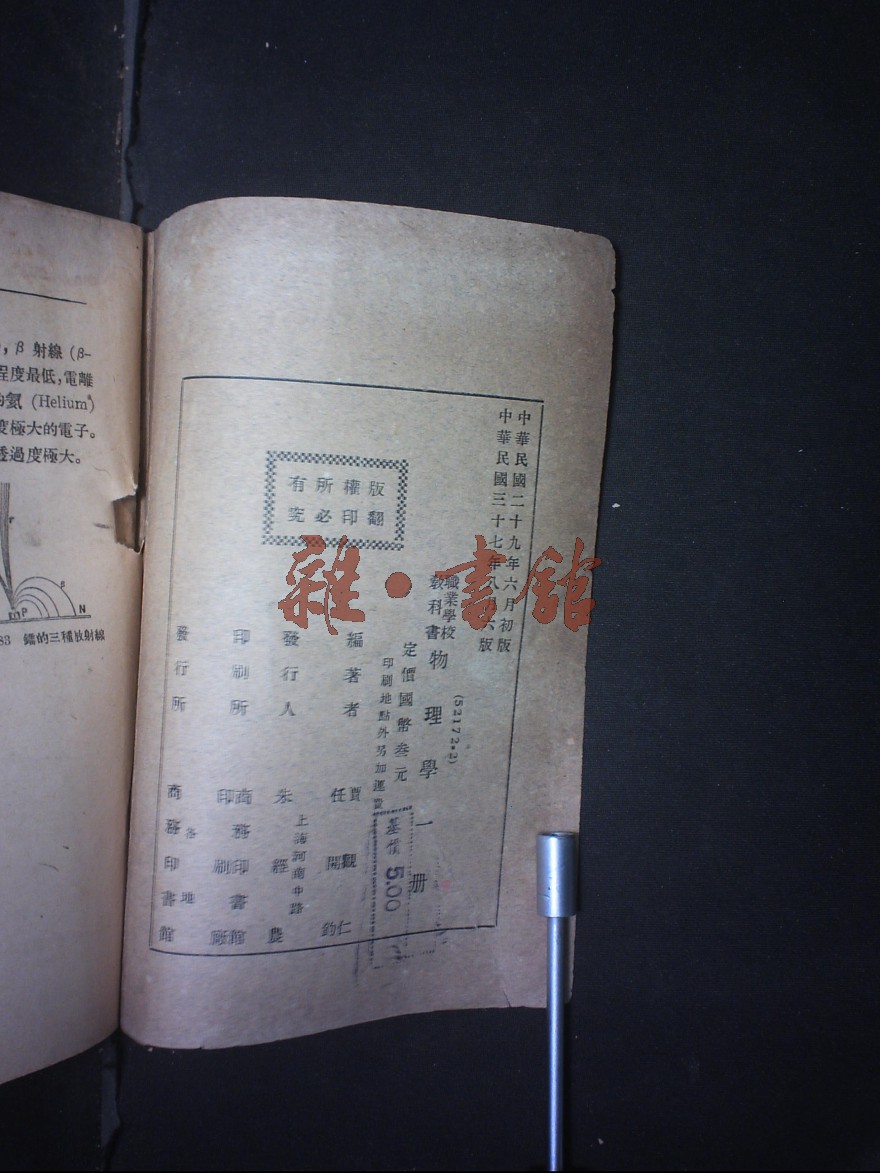 ，β 射線（β–
程度最低，電離
的氦（Helium）
度極大的電子。
透過度極大。
γ
β
P
N
83 鐳的三種放射線
中華民國二十九年六月初版
中華民國三十七年八月六版
(52172·2)
職業學校教科書 物理學 一册
定價國幣叁元
印刷地點外另加運費
基價 5.00
版權所有
翻印必究
編著者 賈觀仁 任開鈞
上海河南中路
發行人 朱經農
印刷所 商務印書館印刷廠
各地
發行所 商務印書館
雜·書館